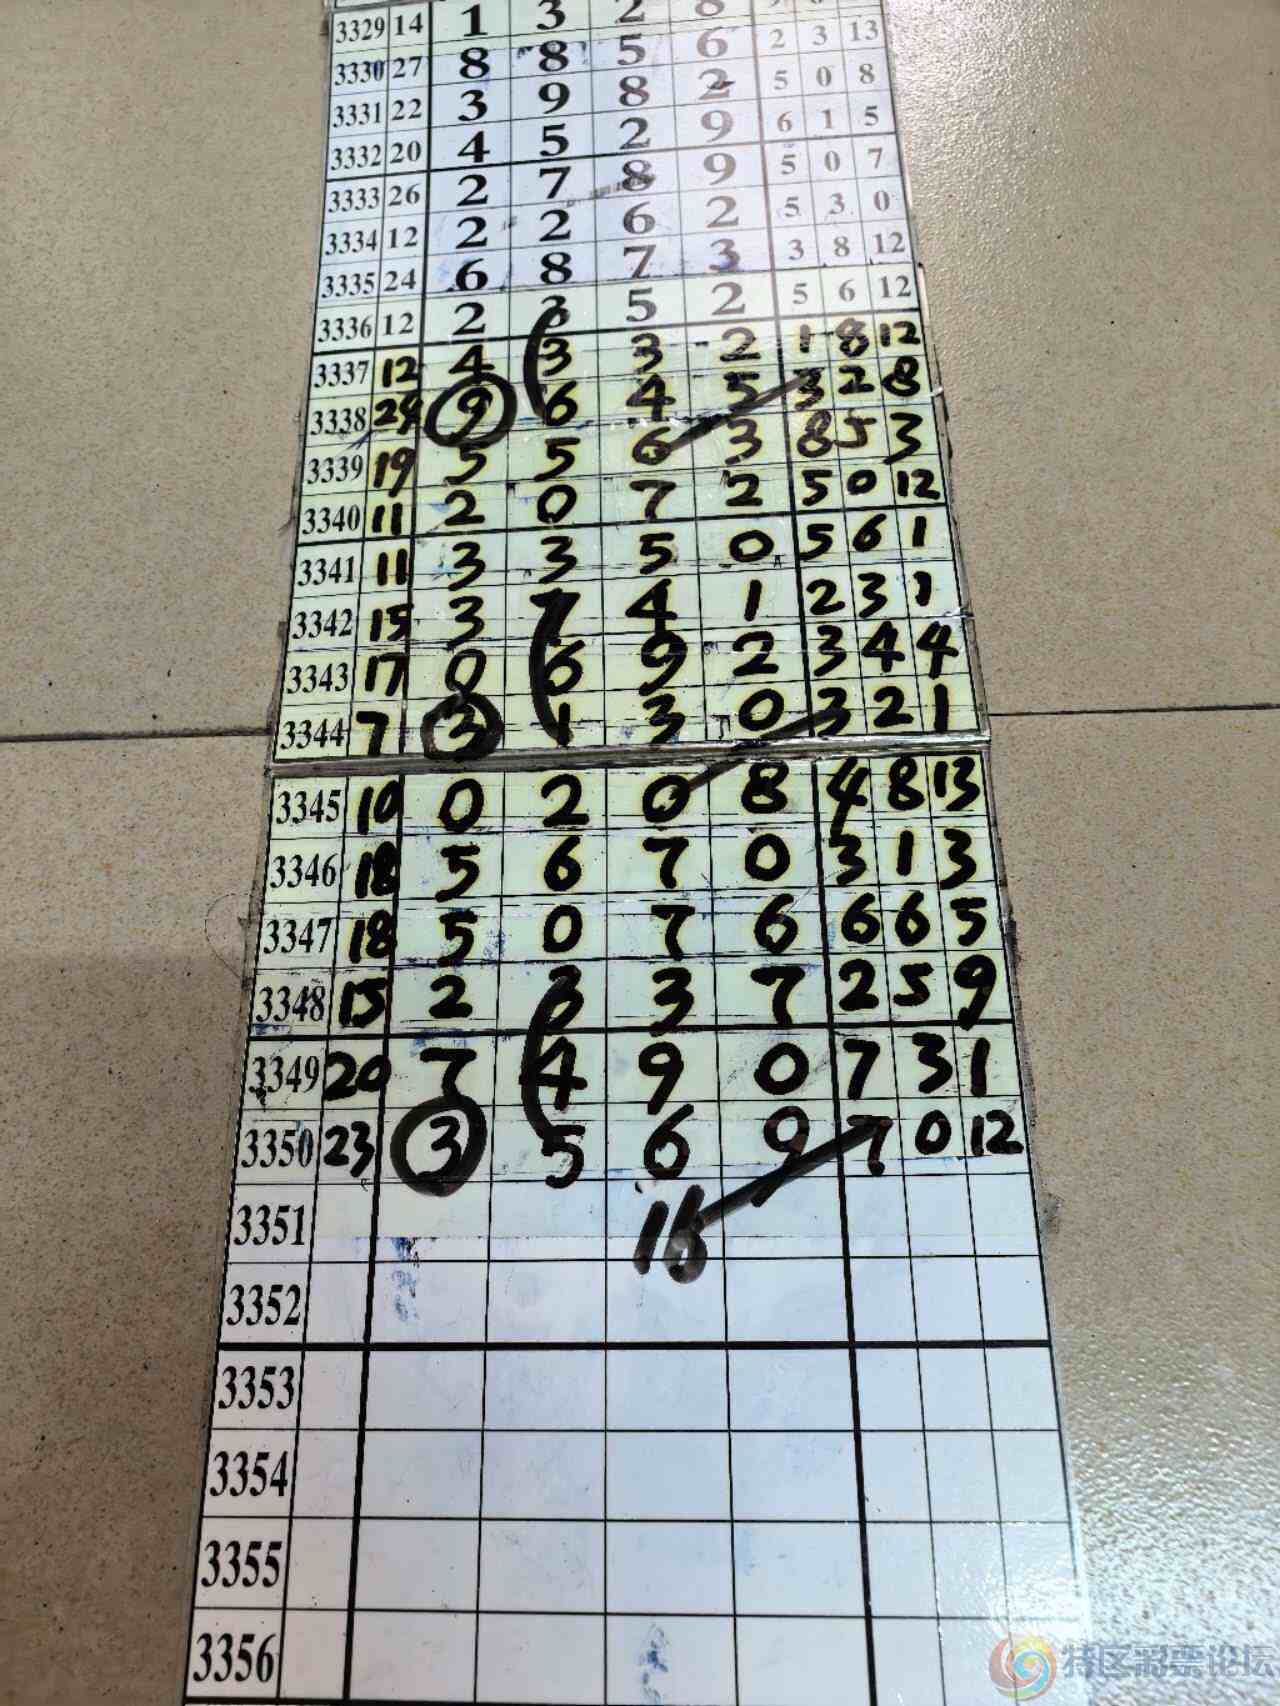 3329 14 1 3 2 8
3330 27 8 8 5 6 2 3 13
3331 22 3 9 8 2 5 0 8
3332 20 4 5 2 9 6 1 5
3333 26 2 7 8 9 5 0 7
3334 12 2 2 6 2 5 3 0
3335 24 6 8 7 3 3 8 12
3336 12 2 3 5 2 5 6 12
3337 12 4 3 3 2 1 8 12
3338 24 9 6 4 5 3 2 8
3339 19 5 5 6 3 8 5 3
3340 11 2 0 7 2 5 0 12
3341 11 3 3 5 0 5 6 1
3342 15 3 7 4 1 2 3 1
3343 17 0 6 9 2 3 4 4
3344 7 3 1 3 0 3 2 1
3345 10 0 2 0 8 4 8 13
3346 18 5 6 7 0 3 1 3
3347 18 5 0 7 6 6 6 5
3348 15 2 3 3 7 2 5 9
3349 20 7 4 9 0 7 3 1
3350 23 3 5 6 9 7 0 12
3351 16
3352
3353
3354
3355
3356
特区彩票论坛